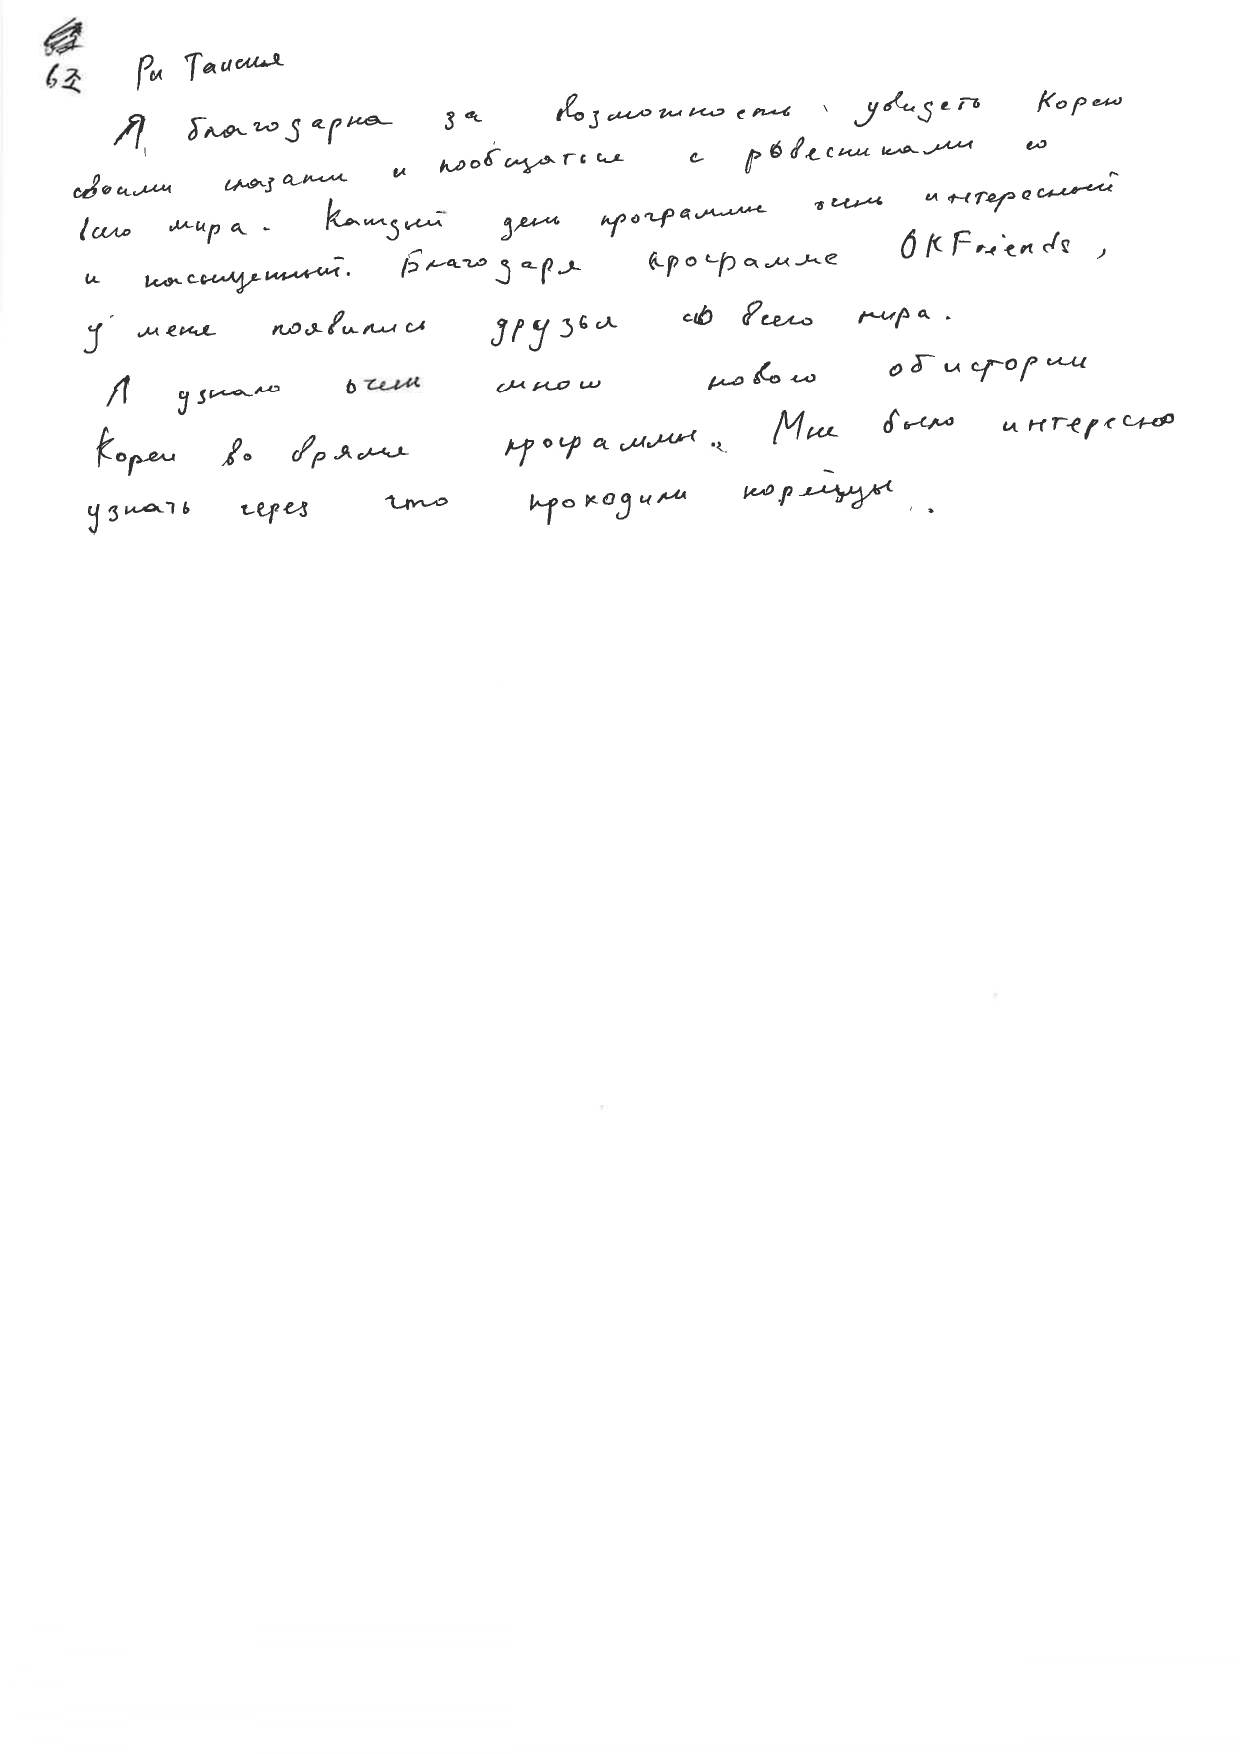 6조 Ри Таисия
Я благодарна за возможность увидеть Корею
своими глазами и пообщаться с ровесниками со
всего мира. Каждый день программы очень интересный
и насыщенный. Благодаря программе OKFriends,
у меня появились друзья со всего мира.
Я узнало очень много нового об истории
Кореи во время программы. Мне было интересно
узнать через что проходили корейцы.